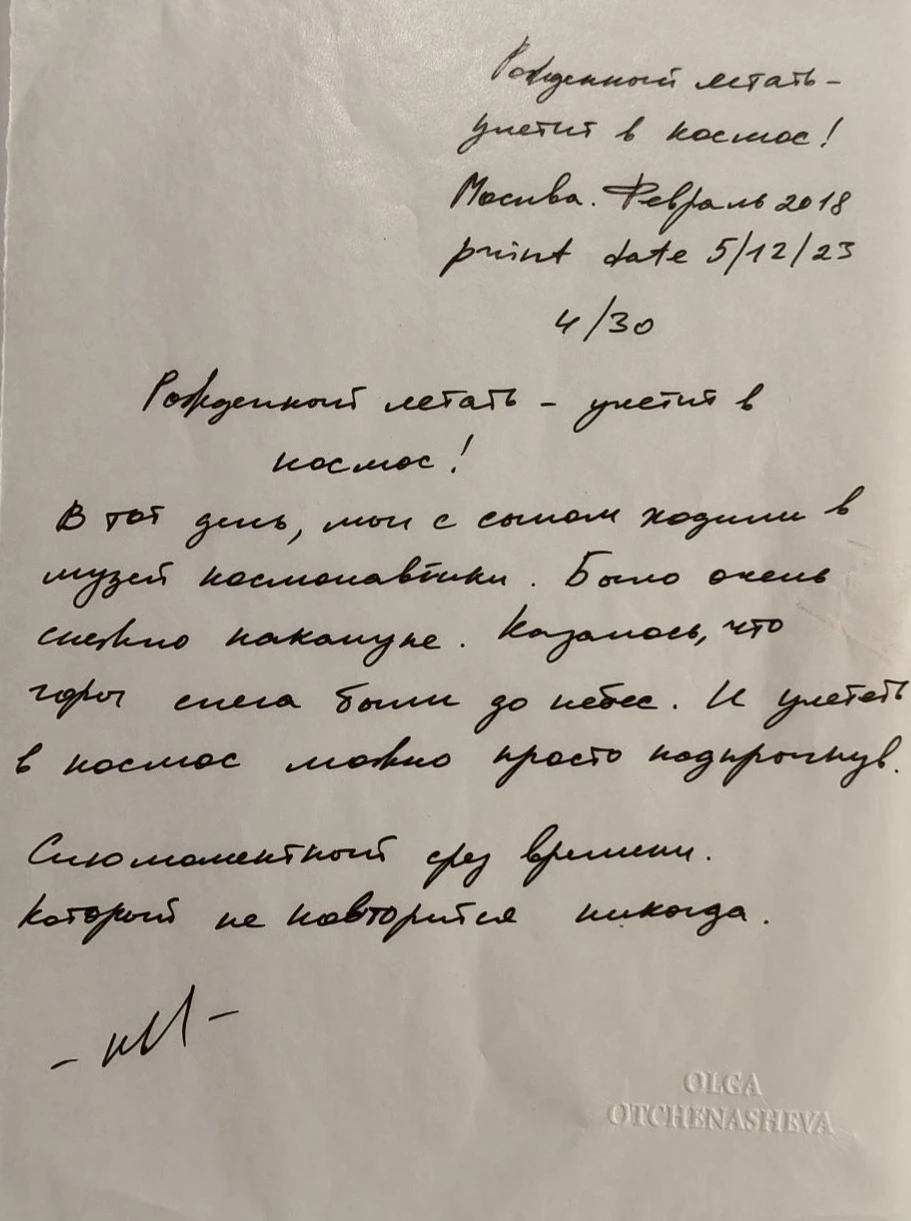 Рожденный летать –
улетит в космос!
Москва. Февраль 2018
print date 5/12/23
4/30
Рожденный летать – улетит в
космос!
В тот день, мы с сыном ходили в
музей космонавтики. Было очень
снежно накануне. Казалось, что
горы снега были до небес. И улететь
в космос можно просто подпрыгнув.
Сиюмоментный срез времени.
Который не повторится никогда.
OLGA
OTCHENASHEVA